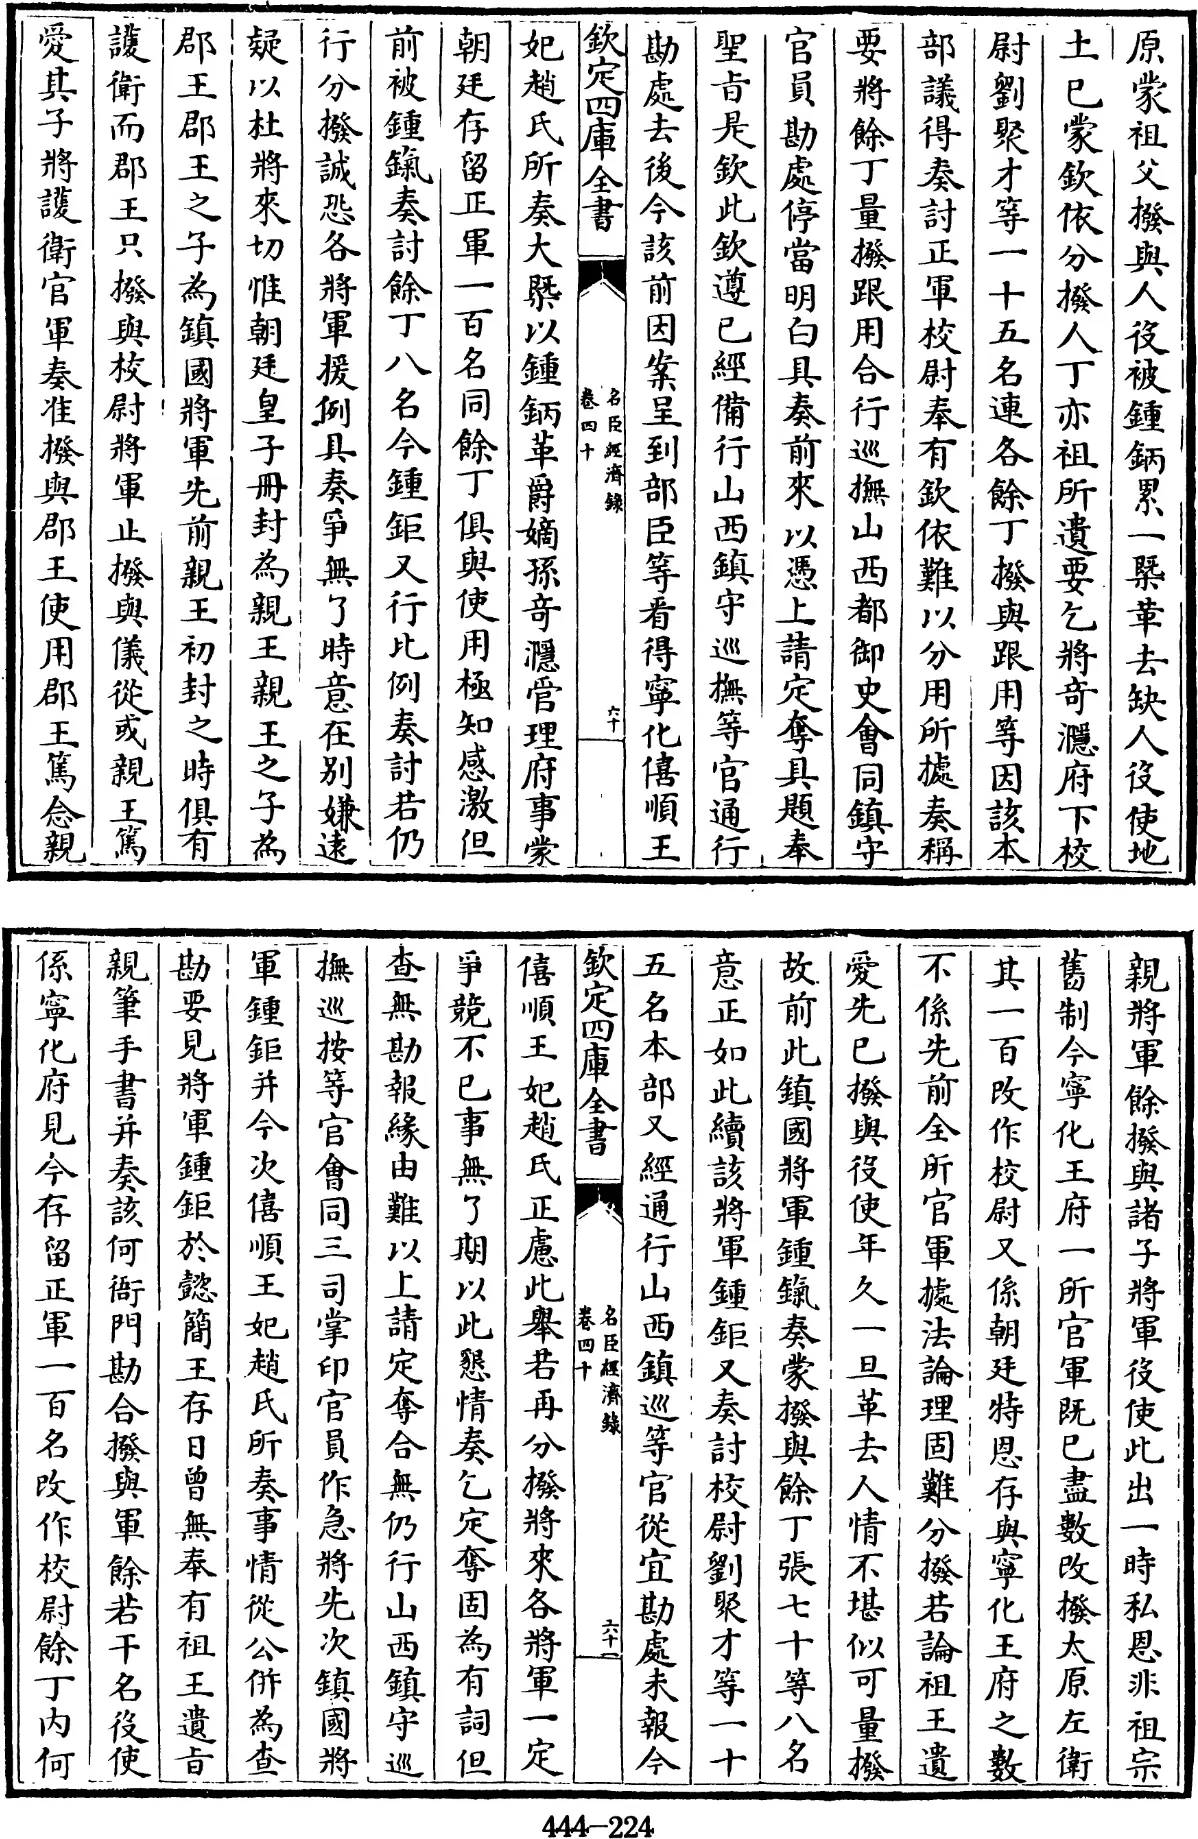 原蒙祖父撥與人役被鍾鈵累一槩革去缺人役使地
土已蒙欽依分撥人丁亦祖所遺要乞將竒濦府下校
尉劉聚才等一十五名連各餘丁撥與跟用等因該本
部議得奏討正軍校尉奉有欽依難以分用所據奏稱
要將餘丁量撥跟用合行巡撫山西都御史會同鎮守
官員勘處停當明白具奏前來以憑上請定奪具題奉
聖㫖是欽此欽遵已經備行山西鎮守巡撫等官通行
勘處去後今該前因案呈到部臣等看得寧化僖順王
欽定四庫全書
名臣經濟錄
卷四十
六十
妃趙氏所奏大槩以鍾鈵革爵嫡孫竒濦管理府事蒙
朝廷存留正軍一百名同餘丁俱與使用極知感激但
前被鍾鏀奏討餘丁八名今鍾鉅又行比例奏討若仍
行分撥誠恐各將軍援例具奏爭無了時意在别嫌逺
疑以杜將來切惟朝廷皇子冊封為親王親王之子為
郡王郡王之子為鎮國將軍先前親王初封之時俱有
護衛而郡王只撥與校尉將軍止撥與儀從或親王篤
愛其子將護衛官軍奏准撥與郡王使用郡王篤念親
親將軍餘撥與諸子將軍役使此出一時私恩非祖宗
舊制今寧化王府一所官軍既已盡數改撥太原左衛
其一百改作校尉又係朝廷特恩存與寧化王府之數
不係先前全所官軍據法論理固難分撥若論祖王遺
愛先已撥與役使年久一旦革去人情不堪似可量撥
故前此鎮國將軍鍾鏀奏蒙撥與餘丁張七十等八名
意正如此續該將軍鍾鉅又奏討校尉劉聚才等一十
五名本部又經通行山西鎮巡等官從宜勘處未報今
欽定四庫全書
名臣經濟錄
卷四十
六十一
僖順王妃趙氏正慮此舉若再分撥將來各將軍一定
爭競不已事無了期以此懇情奏乞定奪固為有詞但
查無勘報緣由難以上請定奪合無仍行山西鎮守巡
撫巡按等官會同三司掌印官員作急將先次鎮國將
軍鍾鉅并今次僖順王妃趙氏所奏事情從公併為查
勘要見將軍鍾鉅於懿簡王存日曾無奉有祖王遺㫖
親筆手書并奏該何衙門勘合撥與軍餘若干名役使
係寧化府見今存留正軍一百名改作校尉餘丁内何
444-224